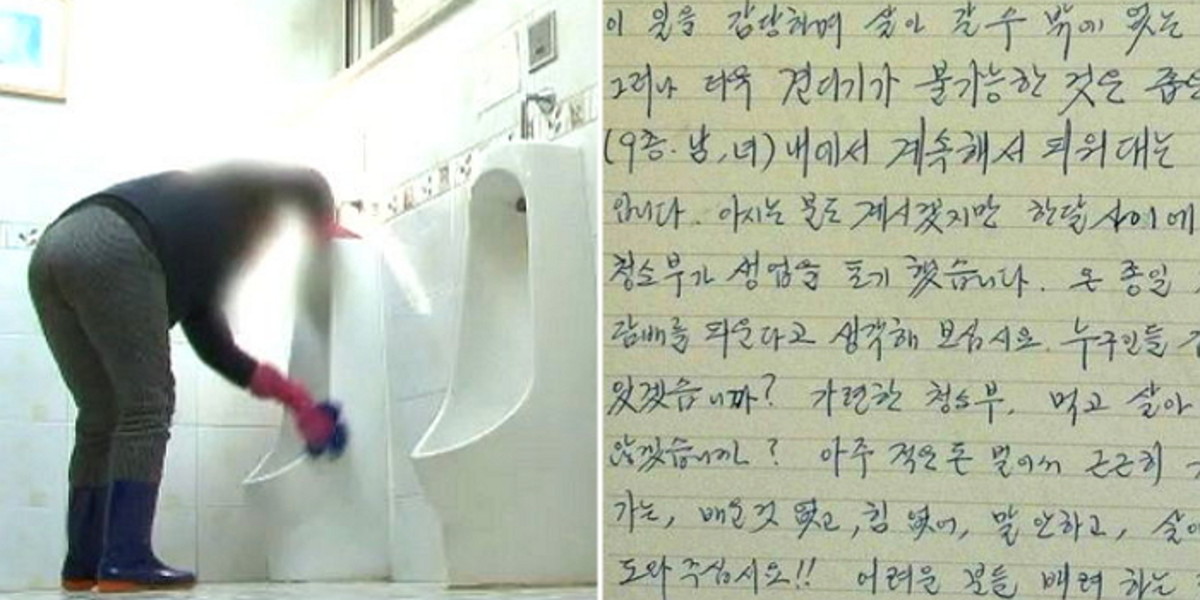 이 일을 감당하며 살아 갈 수 밖에 없는
그러나 더욱 견디기가 불가능한 것은 좁은
(9층. 남,녀) 내에서 계속해서 피워대는
입니다. 아시는 분도 계시겠지만 한달 사이에
청소부가 생업을 포기 했습니다. 온 종일
담배를 피운다고 생각해 보십시요. 누구인들
있겠습니까? 가련한 청소부, 먹고 살아
않겠습니까? 아주 적은 돈 벌어서 근근히
가는, 배운것 없고, 힘 없어, 말 안하고,
도와주십시요!! 어려운 분들 배려 하는